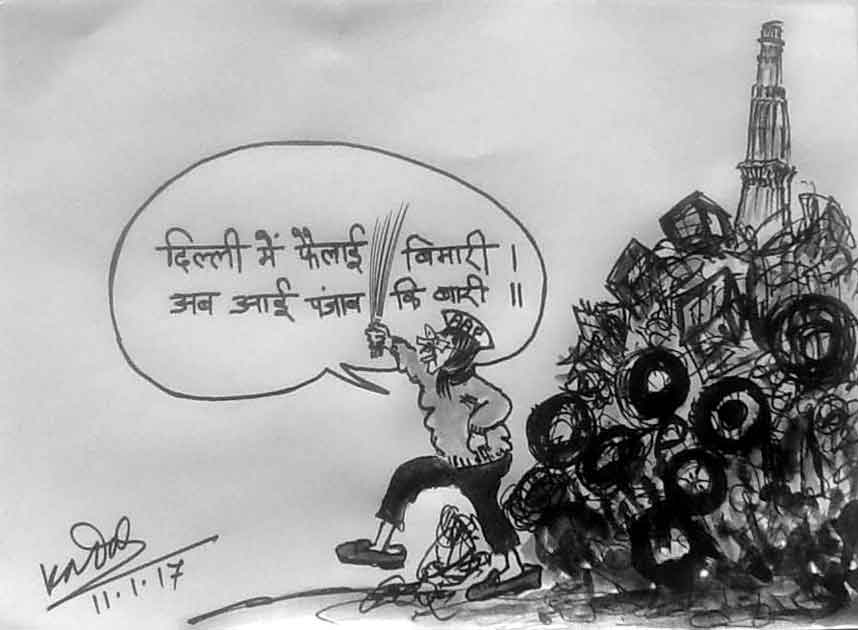 दिल्ली में फैलाई बिमारी ।
अब आई पंजाब कि बारी ॥
AAP
11.1.17